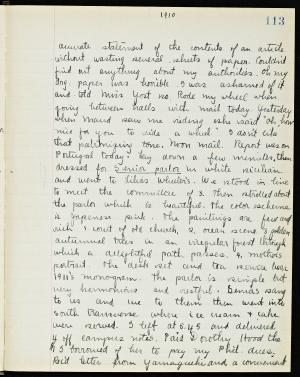 1910
113
accurate statement of the contents of an article
without wasting several sheets of paper. Couldn't
find out anything about my authoress. Oh, my
log. paper was horrible. I was ashamed of it
and told Miss Yost so. Rode my wheel when
going between mails with mail today. Yesterday
when Maud saw me riding she said "oh, how
nice for you to ride a wheel." I don't like
that patronizing tone. Noon mail. Report was on
Portugal today. Lay down a few minutes, then
dressed for Senior parlor in white
and went to We stood in line
to meet the committee of 3. Then strolled about
the parlor which is beautiful. The color scheme
is Japanese pink. The paintings are few and
rich, 1 court of old church, 2, ocean scene 3, golden
autumnal trees in an irregular forest through
which a delightful path passes, 4, mother's
portrait. The desk set and tea service bear
1911's monogram. The parlor is simple but
very harmonious and restful. Seniors sang
to us and we to them then went into
South Transverse where ice cream & cake
were served. I left at 5.45 and delivered
4 off campus notes. Paid Dorothy Hood the
$5 borrowed of her to pay my Phil. dues.
Rec'd letter from Yamaguchi and a convenient